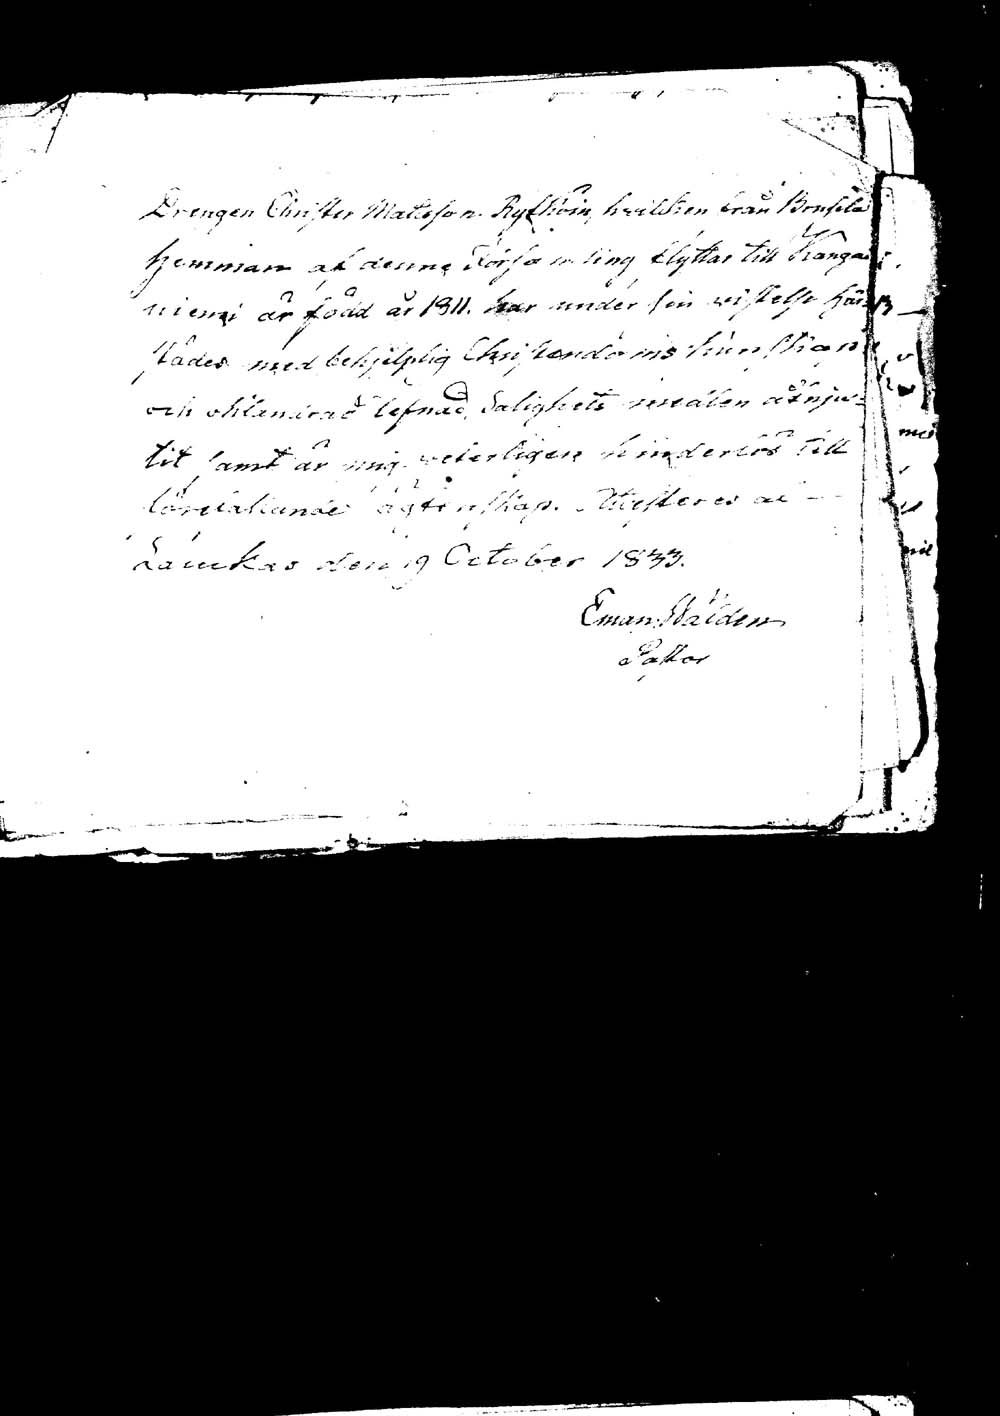 Drengen Christer Matsson Rytköin, hvilken från
hemman af denne Församling flyttar till Kanga
niemi är född år 1811. har under sin vistelse här
städes med behjelplig Christendoms kunskap
och oklandrad lefnad, Salighets medlen åtnju-
tit samt är mig veterligen hinderlös till
ägtenskap. Attesteres af
Laukas den 19 October 1833.
Eman. Walden
Pastor